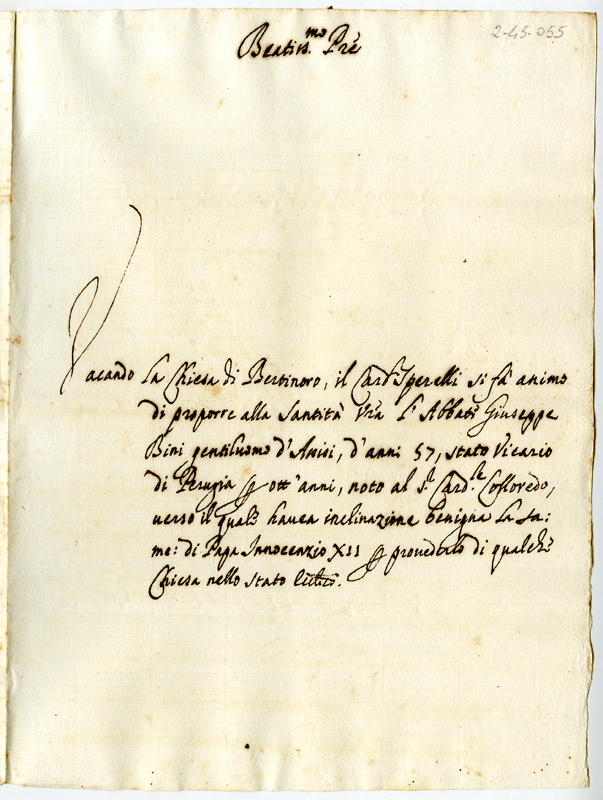 2-45-055
Beatis.mo Pre
Vacando la Chiesa di Bertinoro, il Card.l Sperelli si fà animo
di proporre alla Santità Vra l'Abbate Giuseppe
Bini gentiluomo d'Assisi, d'anni 57, stato Vicario
di Perugia per ott'anni, noto al S.r Card.le Colloredo,
verso il quale havea inclinazione benigna la fa:
me: di Papa Innocenzio XII per provederlo di qualche
Chiesa nello stato